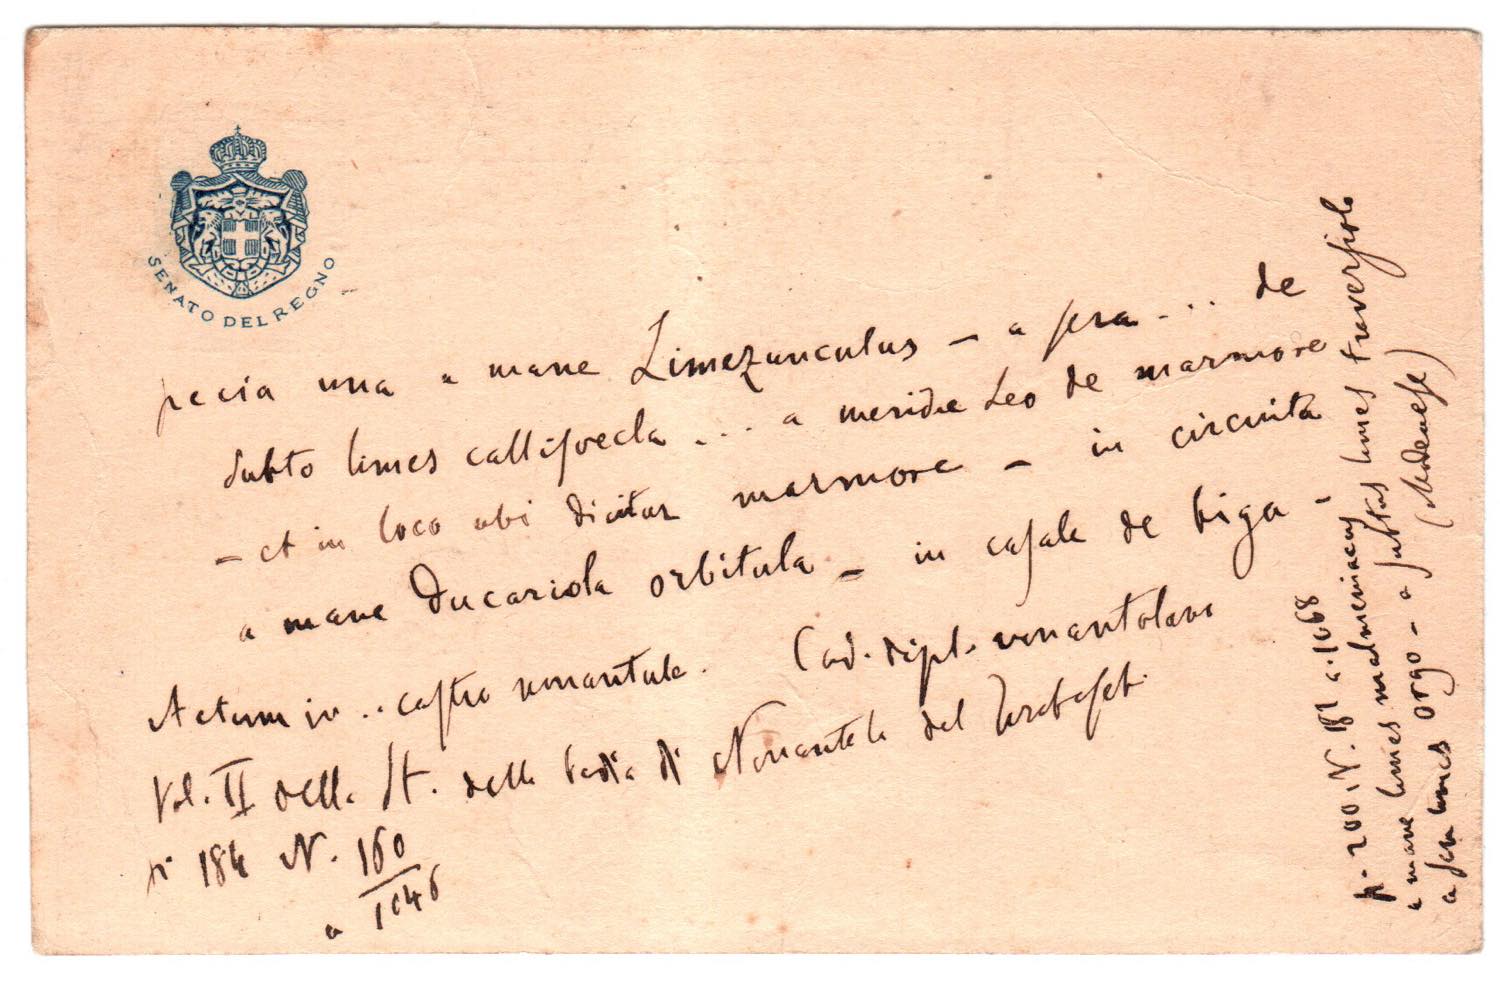 SENATO DEL REGNO
pecia una a mane Limezunculus - a sera ... de
subto limes callisvecla ... a meridie Leo de marmore
- et in loco ubi dicitur marmore - in circuita
a mane Ducariola orbitula - in casale de biga -
Actum in .. castro nonantule. Cod. dipl. nonantolano
Vol. II della St. della badia di Nonantola del Tirabosch.
p. 184 N. 160
a 1046
p. 200, N. 182 a. 1068
a mane limes a subtus limes traversiolo
a sera limes orgo - a (Modenese)